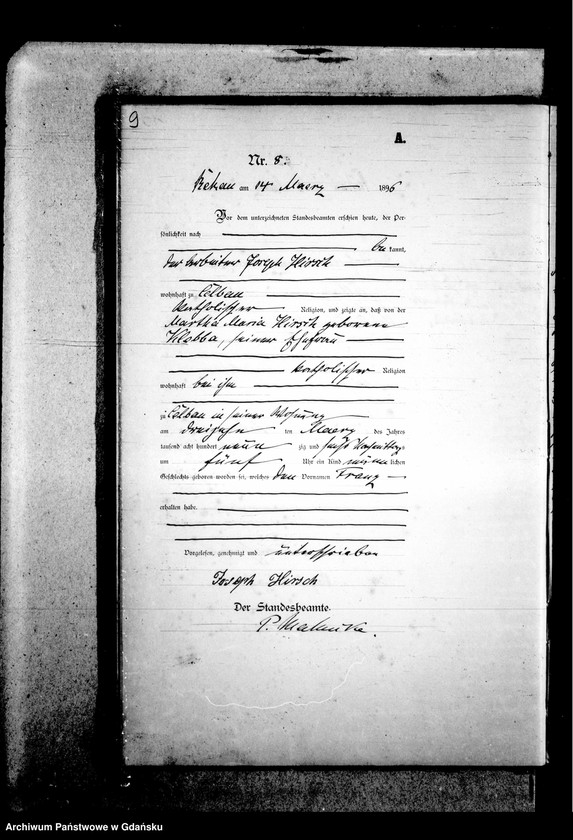 9
A.
Nr. 8.
Rekau am 14 Maerz 1896
Vor dem unterzeichneten Standesbeamten erschien heute, der Per-
sönlichkeit nach
bekannt,
der Arbeiter Joseph Hirsch
wohnhaft zu Ciessau
katholischer Religion, und zeigte an, daß von der
Martha Maria Hirsch geborene
Klobba, seiner Ehefrau
katholischer Religion
wohnhaft bei ihm
zu in seiner Wohnung
am dreizehn ten Maerz des Jahres
tausend acht hundert neun zig und sechs Vormittags
um fünf Uhr ein Kind männlichen
Geschlechts geboren worden sei, welches den Vornamen Franz
erhalten habe.
Vorgelesen, genehmigt und unterschrieben
Joseph Hirsch
Der Standesbeamte.
P.
Archiwum Państwowe w Gdańsku